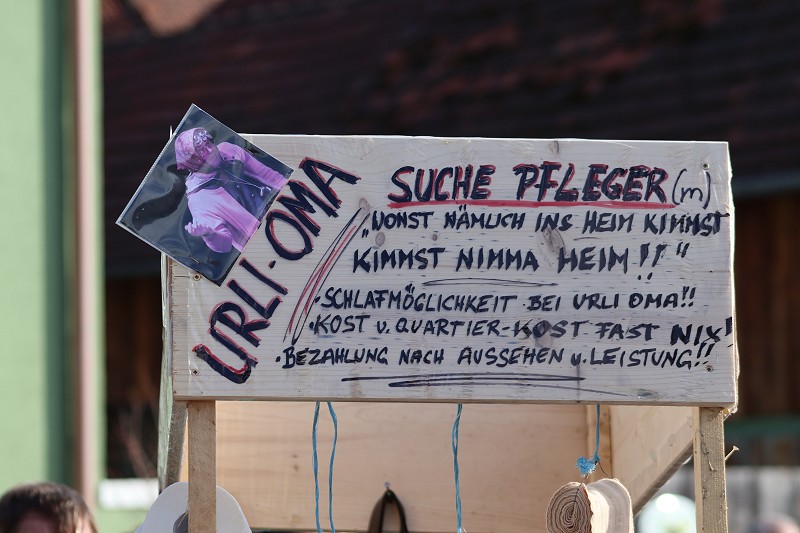 URLI-OMA
SUCHE PFLEGER (m)
"WONST NÄMLICH INS HEIM KIMMST
KIMMST NIMMA HEIM!!"
·SCHLAFMÖGLICHKEIT BEI URLI OMA!!
·KOST u. QUARTIER-KOST FAST NIX!
·BEZAHLUNG NACH AUSSEHEN u. LEISTUNG!!